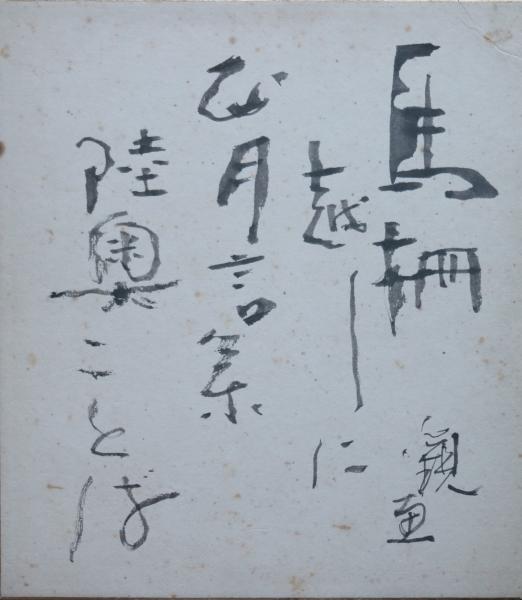 馬柵
越しに
正月言葉
陸奥ことば